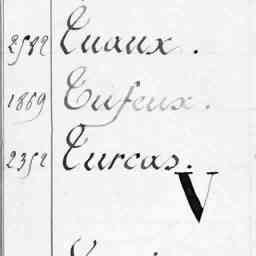 2582 Tuaux.
1869 Tufeux.
2352 Turcas.
V